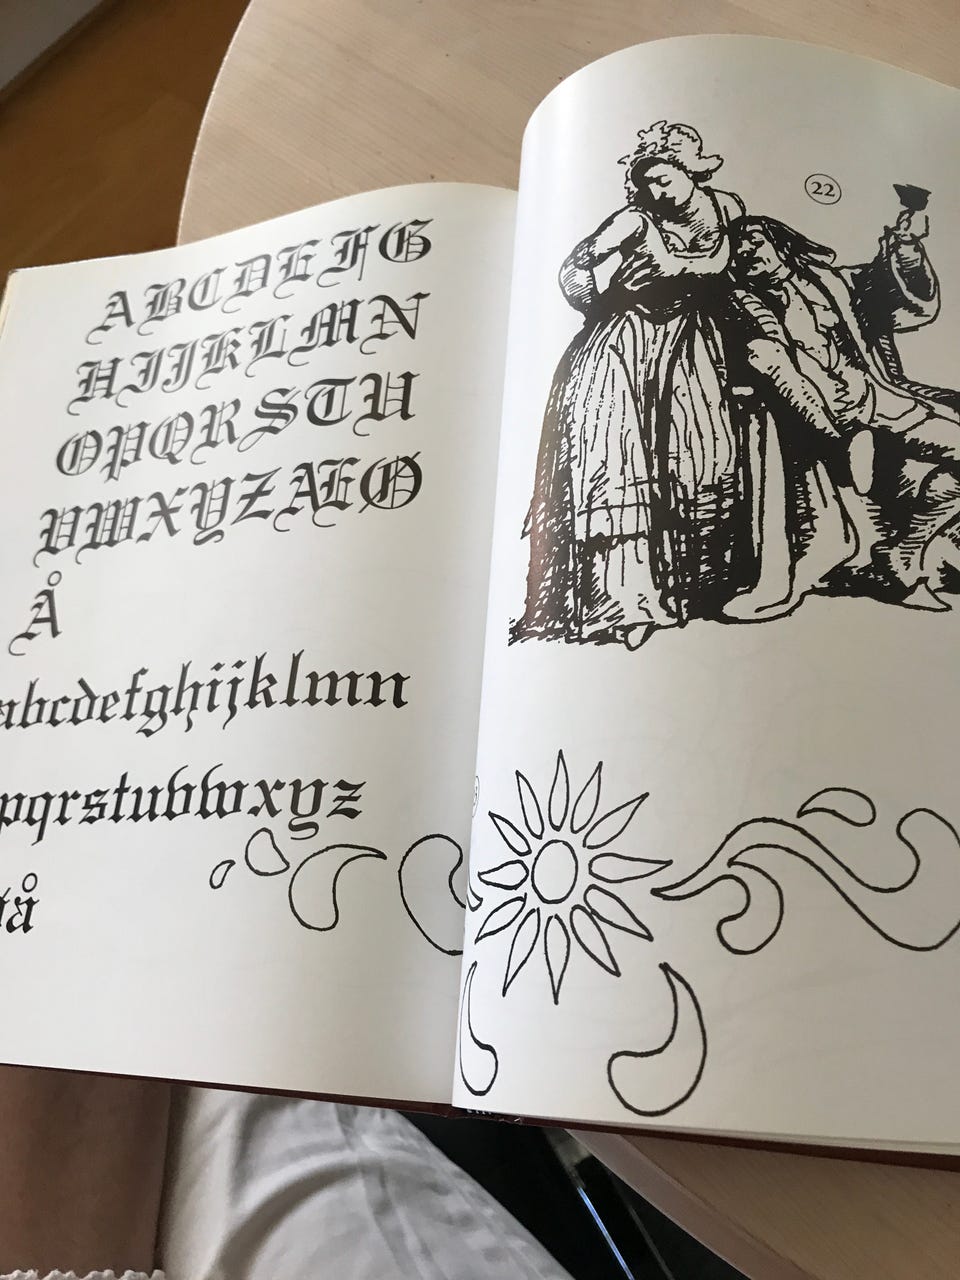 ABCDEFG
HIJKLMN
OPQRSTU
VWXYZÆØ
Å
abcdefghijklmn
pqrstuvwxyz
å
22